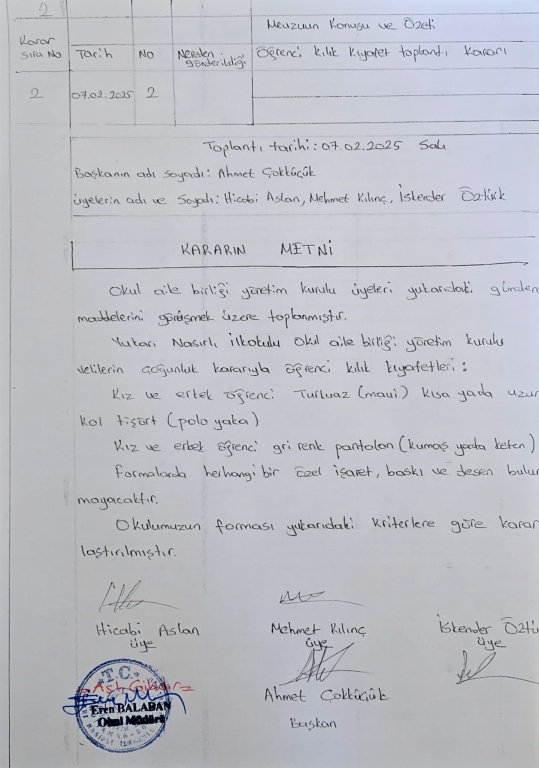 2
Mevzuun Konusu ve Özeti
Karar sıra No
Tarih
No
Nereden gönderildiği
Öğrenci kılık kıyafet toplantı kararı
2
07.02.2025
2
Toplantı tarihi: 07.02.2025 Salı
Başkanın adı soyadı: Ahmet Çoktüçük
üyelerin adı ve soyadı: Hicabi Aslan, Mehmet Kılınç, İskender Öztürk
KARARIN METNİ
Okul aile birliği yönetim kurulu üyeleri yukarıdaki gündem
maddelerini görüşmek üzere toplanmıştır.
Yukarı Nasırlı İlkokulu Okul aile birliği yönetim kurulu
velilerin çoğunluk kararıyla öğrenci kılık kıyafetleri:
Kız ve erkek öğrenci Turkuaz (mavi) kısa yada uzun
kol tişört (polo yaka)
Kız ve erkek öğrenci gri renk pantolon (kumaş yada keten)
Formalarda herhangi bir özel işaret, baskı ve desen bulun
mayacaktır.
Okulumuzun forması yukarıdaki kriterlere göre karar
laştırılmıştır.
Hicabi Aslan
üye
Mehmet Kılınç
üye
İskender Öztü
üye
Ahmet Çoktüçük
Başkan
T.C.
Aslı Gibidir
Eren BALABAN
Okul Müdürü